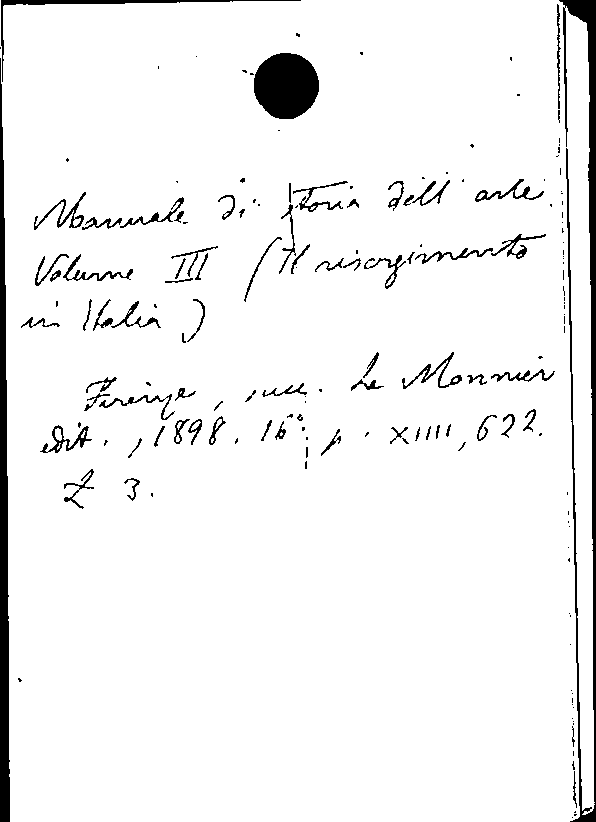 Manuale di storia dell'arte.
Volume III (Il risorgimento
in Italia)
Firenze, succ. Le Monnier
edit., 1898. 16° p. XIIII, 622.
£ 3.